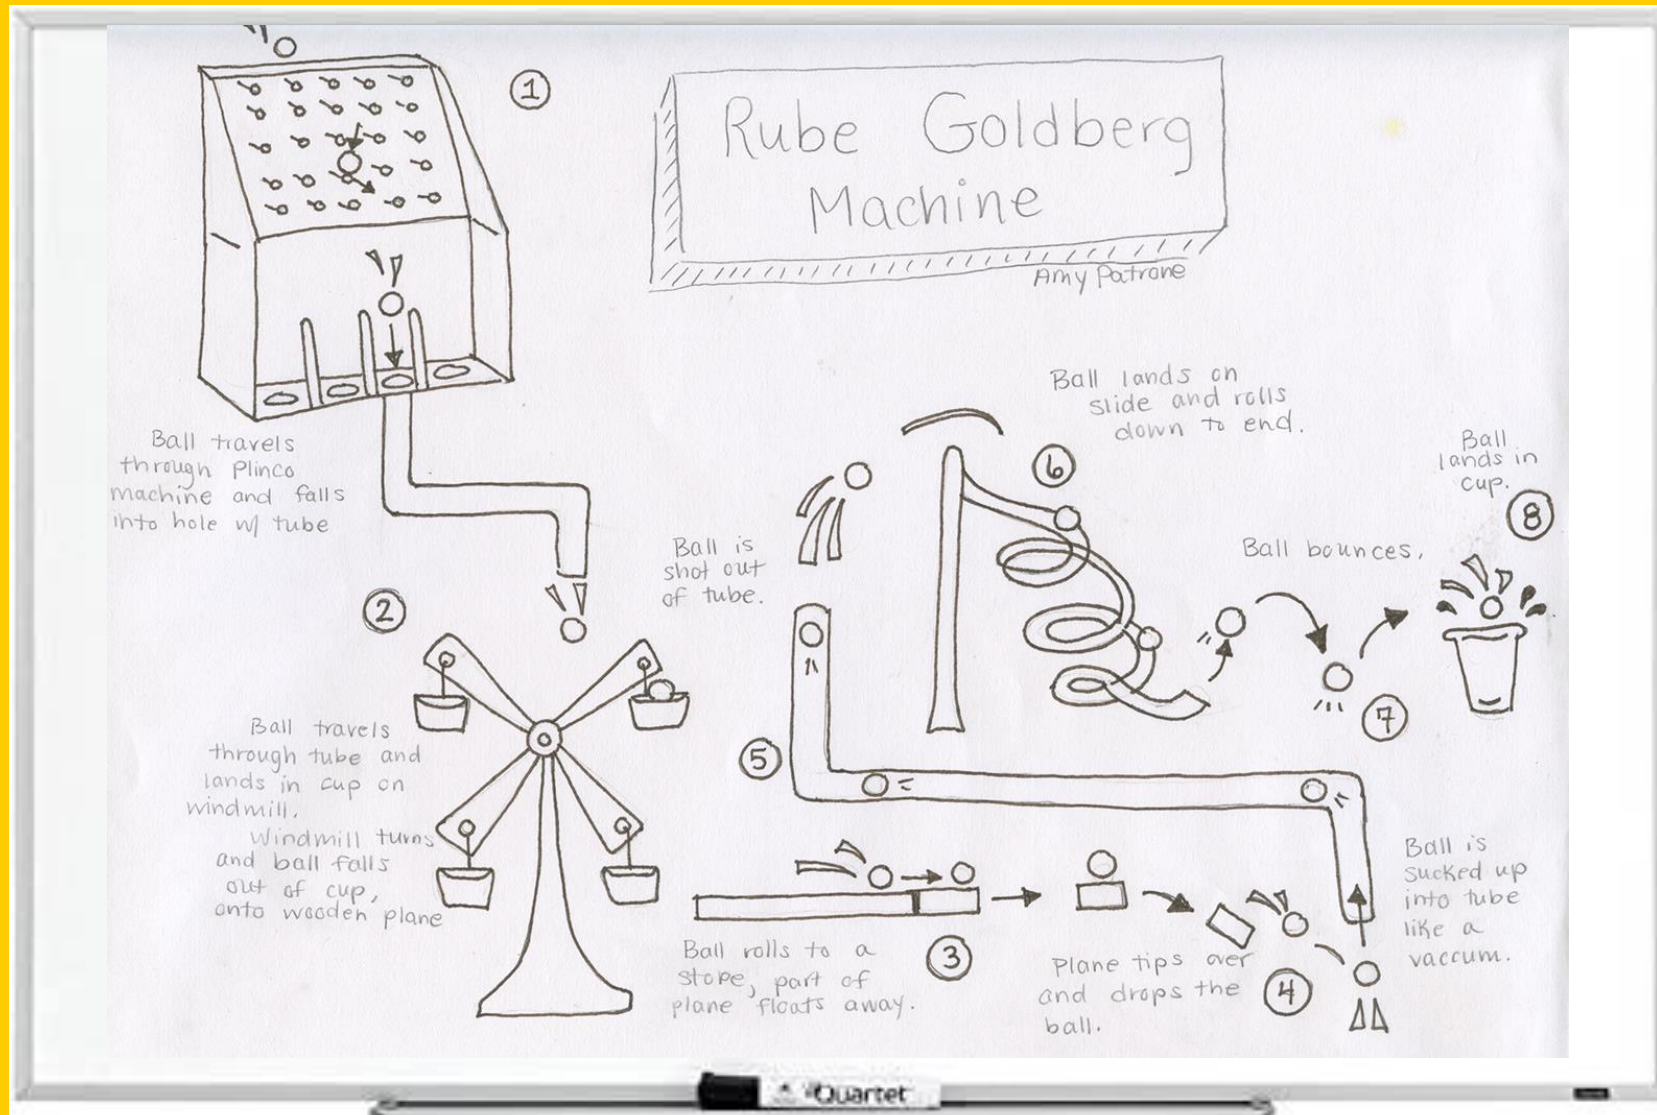 1
Rube Goldberg
Machine
Amy Patrone
Ball travels
through Plinco
machine and falls
into hole w/ tube
2
Ball travels
through tube and
lands in cup on
windmill.
Windmill turns
and ball falls
out of cup,
onto wooden plane
Ball rolls to a
stope, part of
plane floats away.
3
Plane tips over
and drops the
ball.
4
Ball is
sucked up
into tube
like a
vaccum.
5
Ball is
shot out
of tube.
6
Ball lands on
slide and rolls
down to end.
Ball bounces.
7
Ball
lands in
cup.
8
Quartet